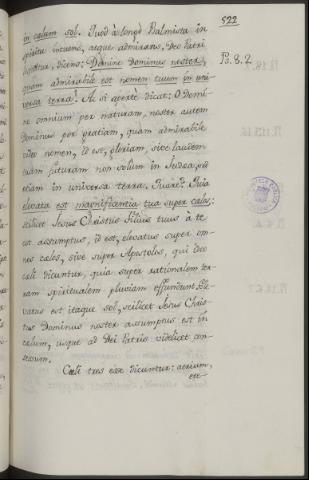 522
in cælum sol. Quod à longè Psalmista in
spiritu intuens, atque admirans, Deo Patri
loquitur, dicens: Domine Dominus noster,
Ps. 8. 2.
quam admirabile est nomen tuum in uni-
versa terra! Ac si apertè dicat: O Domi-
ne omnium per naturam, noster autem
Dominus per gratiam, quam admirabile
video nomen, id est, gloriam, sive laudem
tuam futuram non solum in Judea, sed
etiam in universa terra. Quare? Quia
elevata est magnificentia tua super cælos:
scilicet Jesus Christus Filius tuus à te
est assumptus, id est, elevatus super om-
nes cælos, sive super Apostolos, qui ideo
cæli dicuntur, quia super rationalem ter-
ram spiritualem pluviam effundunt. Ele-
vatus est itaque sol, scilicet Jesus Chris-
tus Dominus noster assumptus est in
cælum, usque ad Dei Patris videlicet con-
Cæli tres esse dicuntur: aerium,